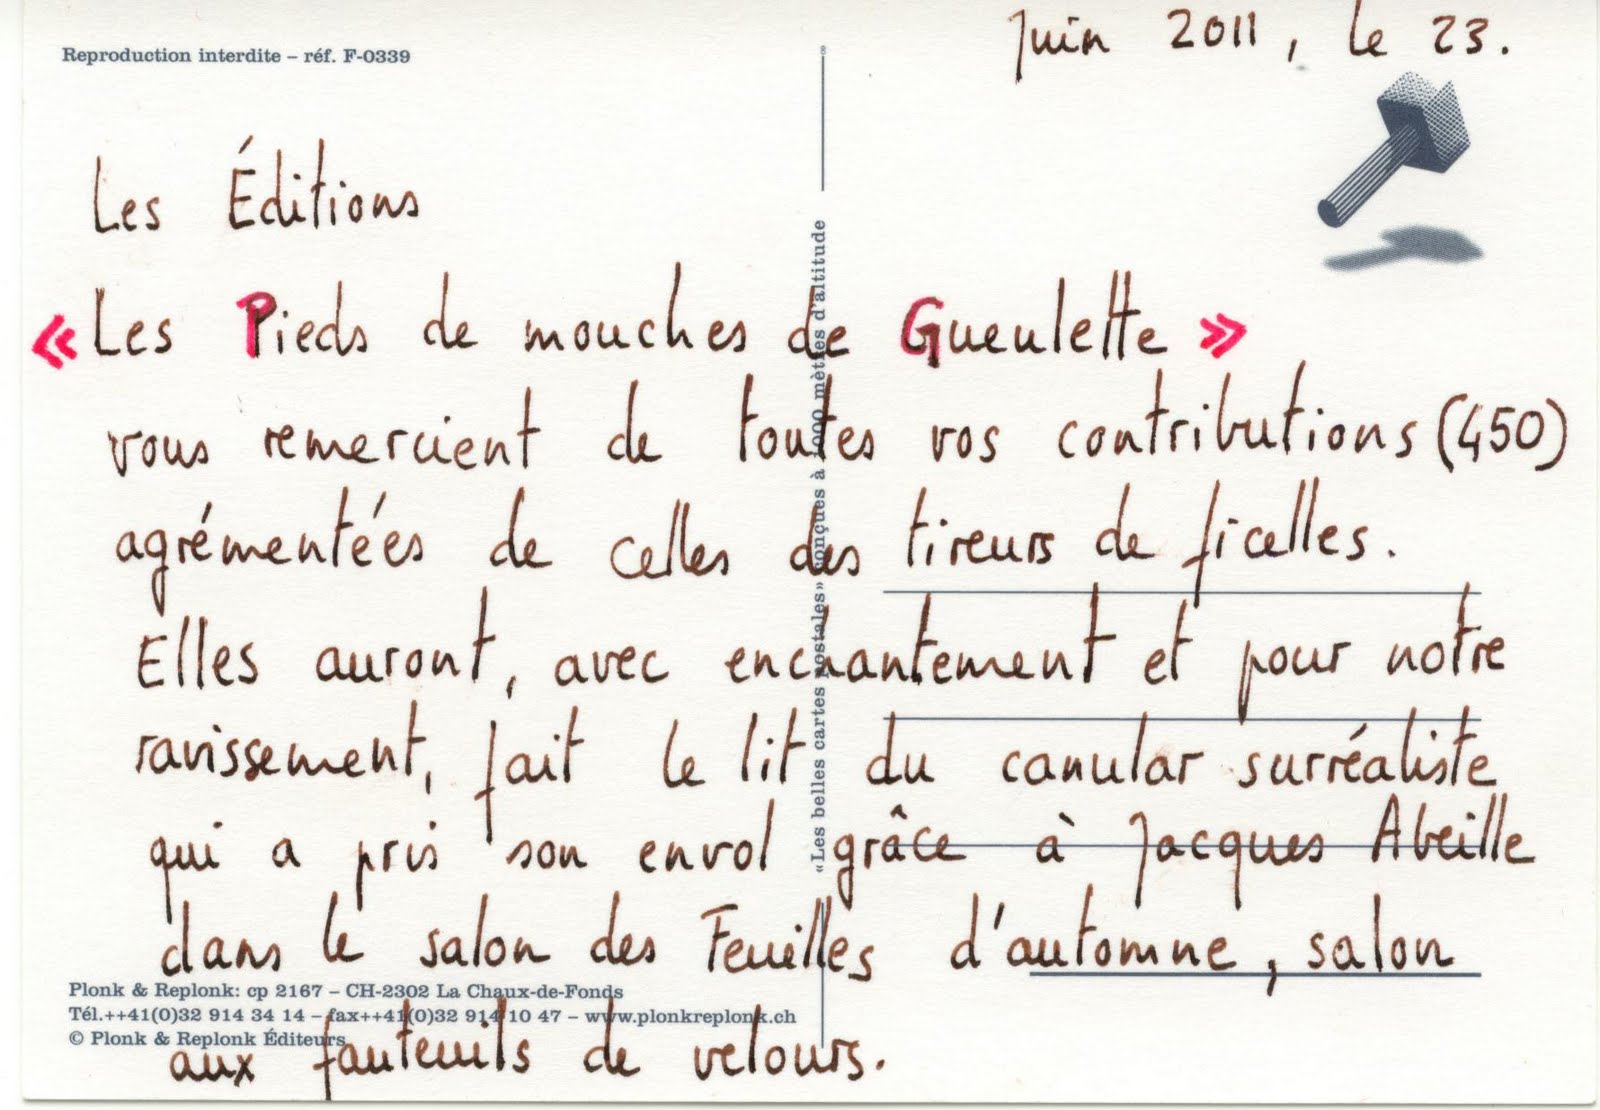 Juin 2011, le 23.
Reproduction interdite – réf. F-0339
Les Éditions
« Les Pieds de mouches de Gueulette »
vous remercient de toutes vos contributions (450)
agrémentées de celles des tireurs de ficelles.
Elles auront, avec enchantement et pour notre
ravissement, fait le lit du canular surréaliste
qui a pris son envol grâce à Jacques Abeille
dans le salon des Feuilles d'automne, salon
aux fauteuils de velours.
«Les belles cartes postales» conçues à 1000 mètres d'altitude
Plonk & Replonk: cp 2167 – CH-2302 La Chaux-de-Fonds
Tél.++41(0)32 914 34 14 – fax++41(0)32 914 10 47 – www.plonkreplonk.ch
© Plonk & Replonk Éditeurs